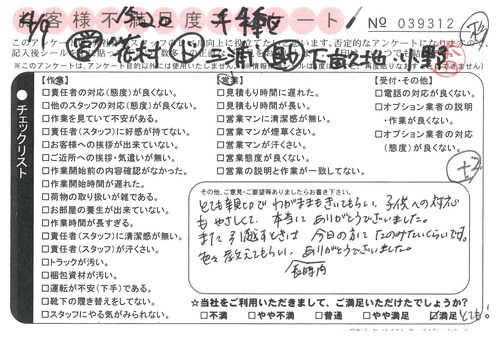 お客様不満足度アンケート!
4/9 15:20 千種区
No 039312
このアンケートは
否定的なアンケートになりますの
※このアンケートは、アンケート目的以外には使用いたしません。
チェックリスト
【作業】
□責任者の対応(態度)が良くない。
□他のスタッフの対応(態度)が良くない。
□作業を見ていて不安がある。
□責任者(スタッフ)に好感が持てない。
□お客様への挨拶が出来ていない。
□ご近所への挨拶・気遣いが無い。
□作業開始前の内容確認がなかった。
□作業開始時間が遅れた。
□荷物の取り扱いが雑である。
□お部屋の養生が出来ていない。
□作業時間が長すぎる。
□責任者(スタッフ)に清潔感が無い。
□責任者(スタッフ)が汗くさい。
□トラックが汚い。
□梱包資材が汚い。
□運転が不安(下手)である。
□靴下の履き替えをしてない。
□スタッフにやる気がみられない。
【営業】
□見積もり時間に遅れた。
□見積もり時間が長い。
□営業マンに清潔感が無い。
□営業マンが煙草くさい。
□営業マンが汗くさい。
□営業態度が良くない。
□営業の説明と作業が一致してない。
【受付・その他】
□電話の対応が良くない。
□オプション業者の説明
・作業が良くない。
□オプション業者の対応
(態度)が良くない。
その他、ご意見・ご要望等ありましたらお書き下さい。
とても親切でわがままもきいてもらい、子供への対応
もやさしくて、本当にありがとうございました。
また引越すときは今日の方にたのみたいくらいです。
色々教えてもらい、ありがとうございました。
長時間
☆当社をご利用いただきまして、ご満足いただけたでしょうか?
□不満 □やや不満 □普通 □やや満足 ☑満足 とても!